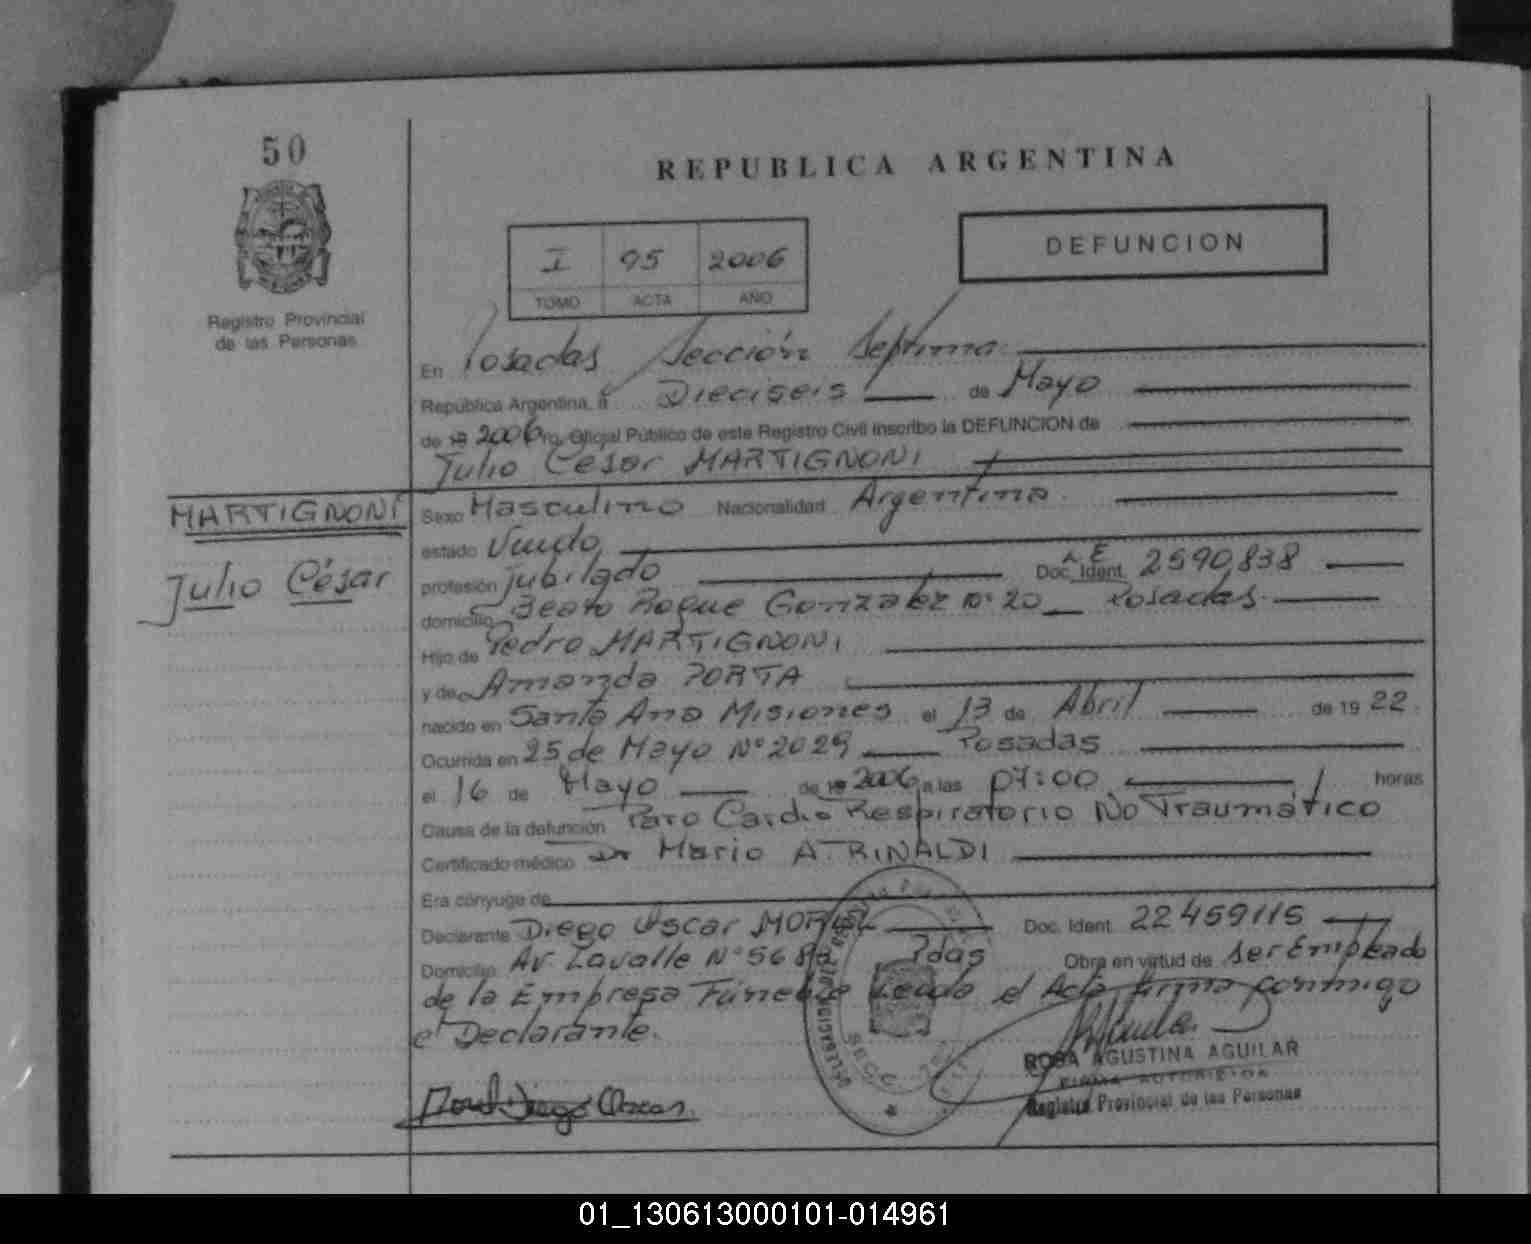 50
REPUBLICA ARGENTINA
I 95 2006
TOMO ACTA AÑO
DEFUNCION
Registro Provincial
de las Personas
En Posadas Sección Septima
República Argentina, a Dieciseis de Mayo
de 19 2006 Oficial Público de este Registro Civil inscribo la DEFUNCION de
Julio Cesar MARTIGNONI
MARTIGNONI
Julio César
Sexo Masculino Nacionalidad Argentina
estado Viudo
profesión jubilado Doc. Ident. L E 2590,838
domicilio Beato Roque Gonzalez Nº 20 Posadas.
Hijo de Pedro MARTIGNONI
y de Amanda PORTA
nacido en Santa Ana Misiones el 13 de Abril de 19 22
Ocurrida en 25 de Mayo Nº 2029 Posadas
el 16 de Mayo de 19 2006 a las 07:00 horas
Causa de la defunción Paro Cardio Respiratorio No Traumático
Certificado médico Dr Mario A. RINALDI
Era cónyuge de
Declarante Diego Oscar Doc. Ident. 22459115
Domicilio Av. Lavalle Nº Pdas Obra en virtud de ser Empleado
de la Empresa Fúnebre Leida el Acta firma conmigo
el Declarante.
Diego Oscar
ROSA AGUSTINA AGUILAR
FIRMA AUTORIZADA
Registro Provincial de las Personas
01_130613000101-014961